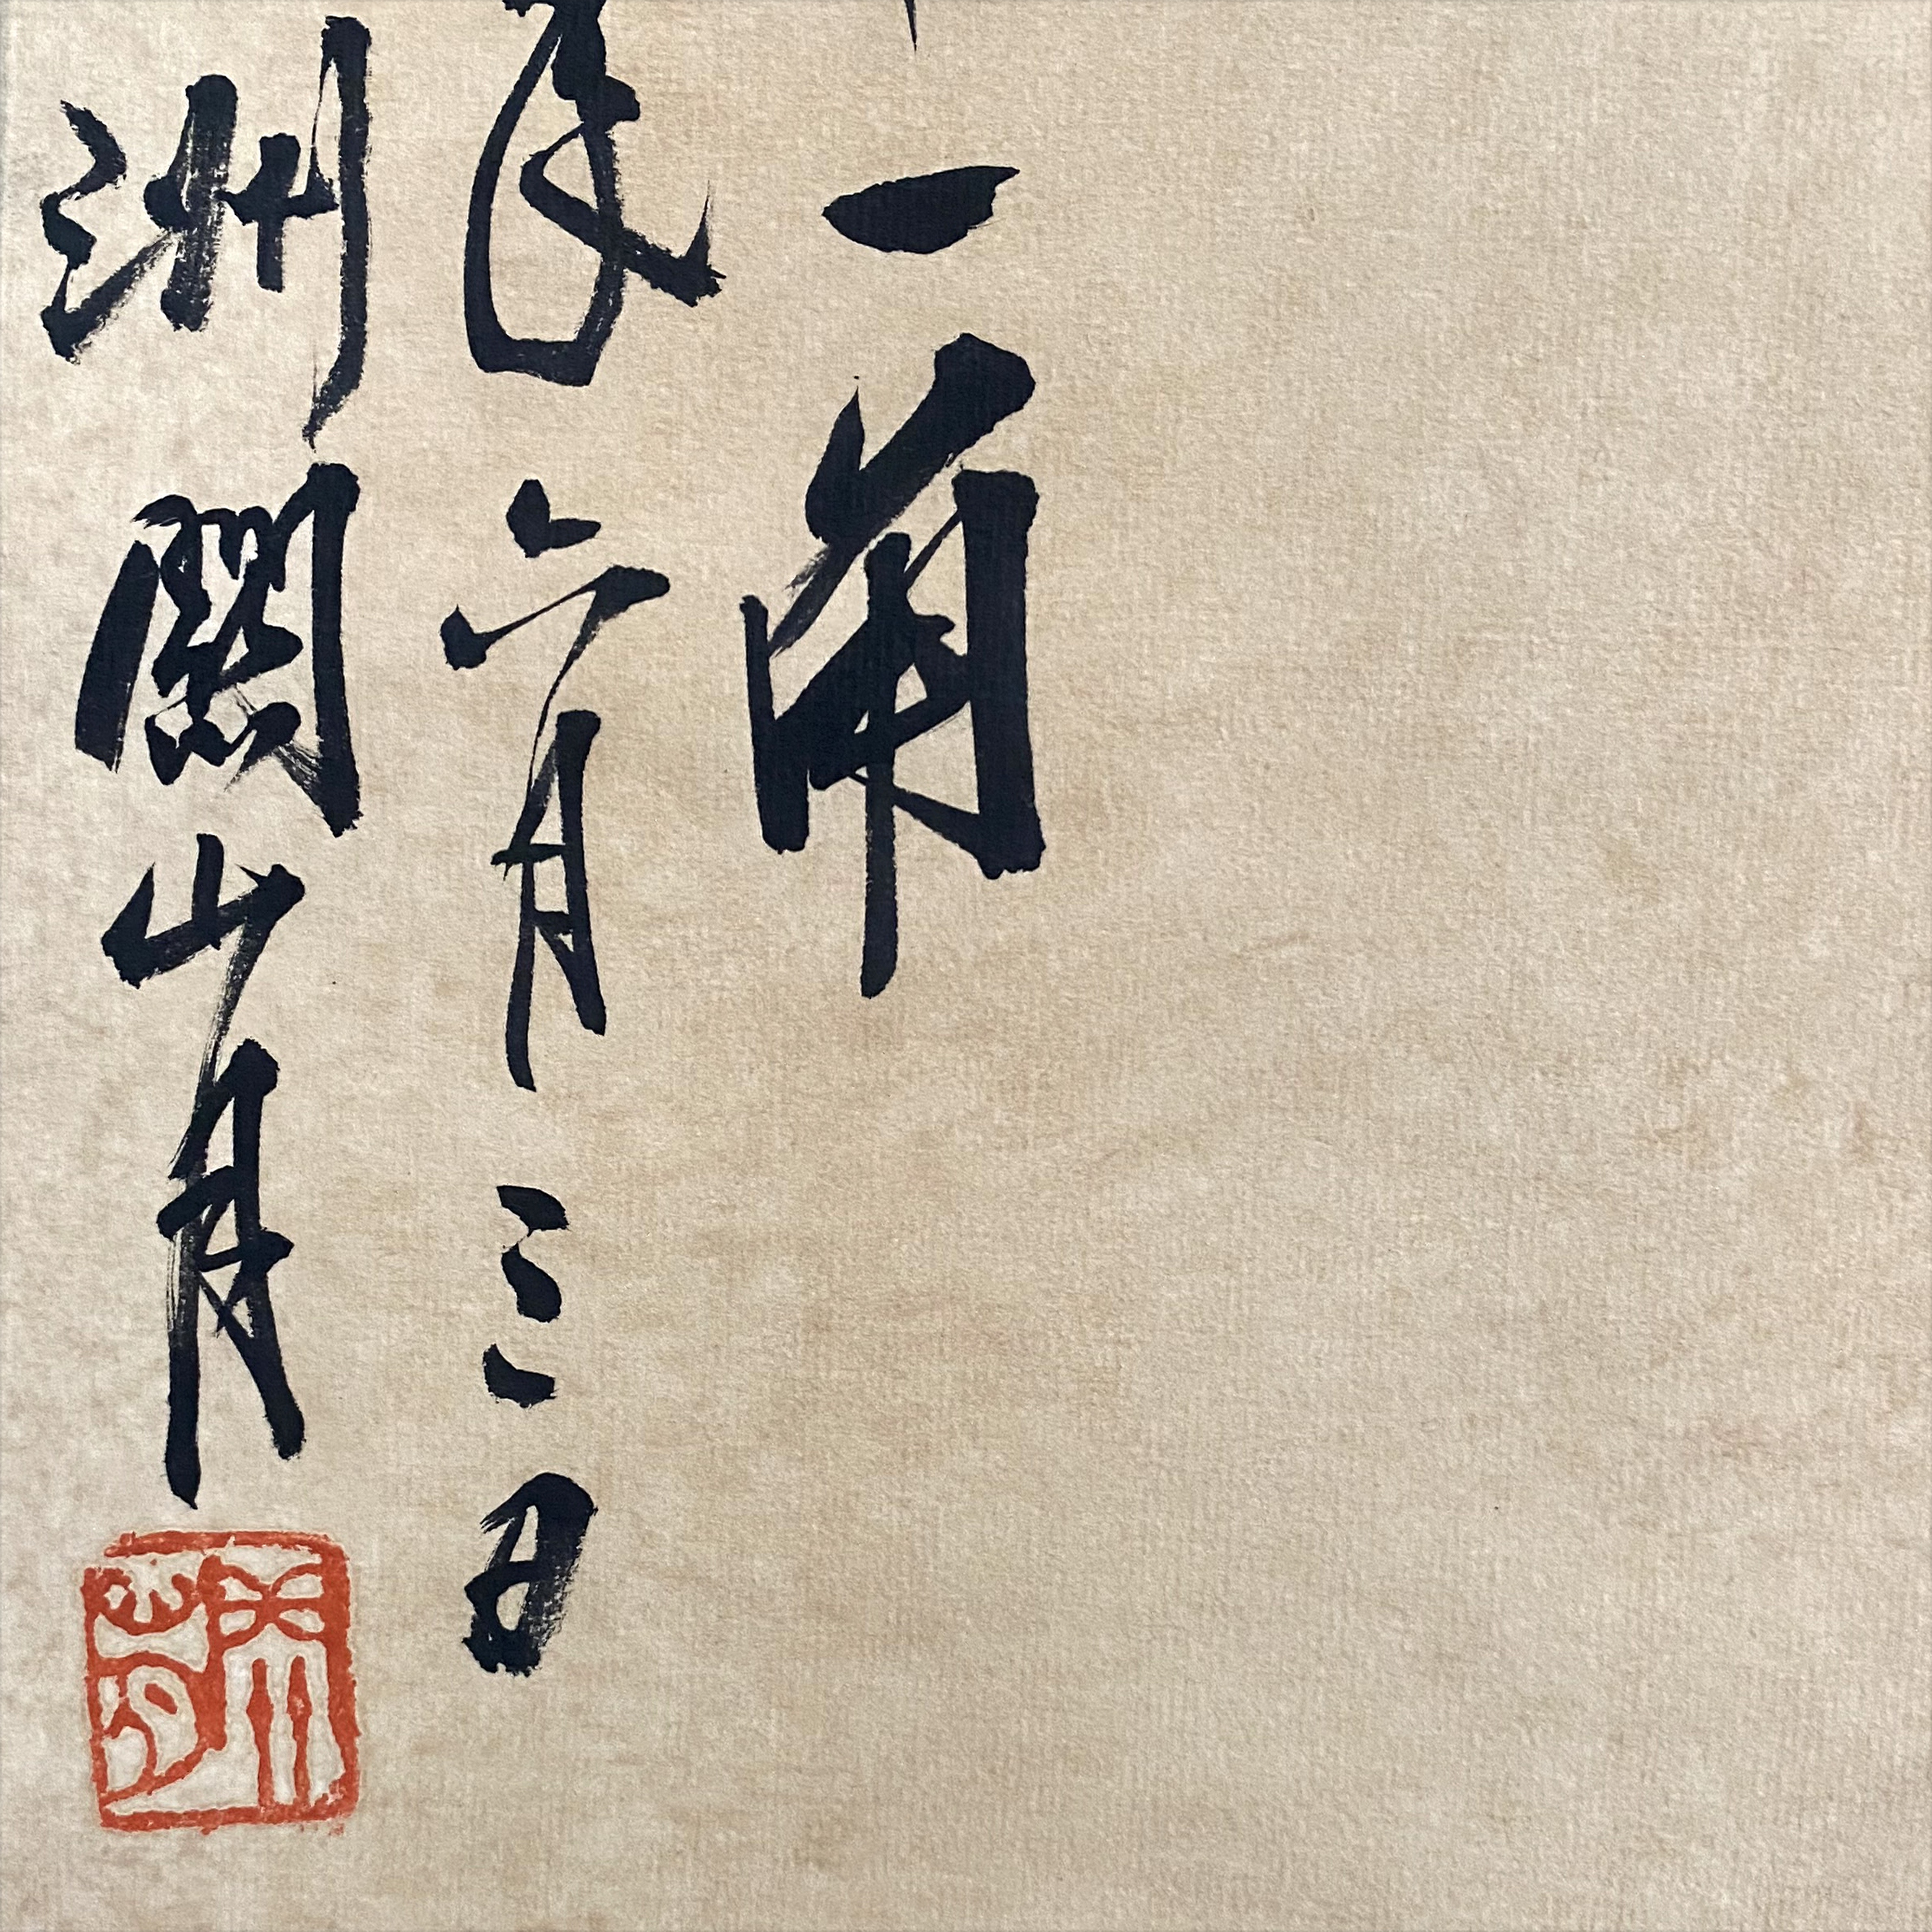 一角
年六月三日
洲關山月